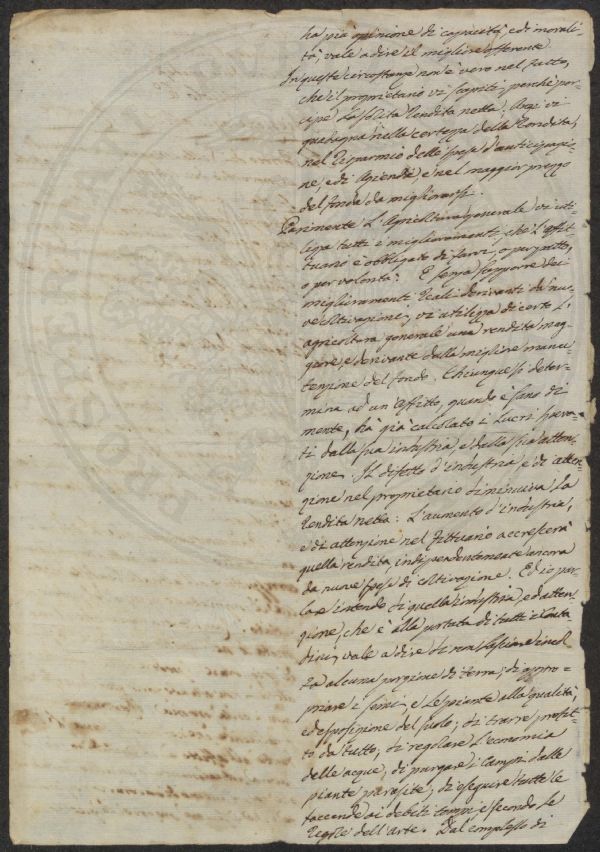 ha più opinione di capacità, e di morali-
tà, vale a dire il migliore offerente
In queste circostanze non è vero nel fatto,
che il proprietario vi scapiti, perchè per-
cipe la solita rendita netta. Anzi vi
guadagna nella certezza della rendita,
nel risparmio delle spese d'anticipazio-
ne, e di Azienda, e nel maggior prezzo
del fondo da migliorarsi.
Parimente l'Agricoltura generale vi uti-
lizza tutti i miglioramenti, che l'affit-
tuario è obbligato di farvi, o per patto,
o per volontà. E senza supporre dei
miglioramenti reali derivanti da nuo-
ve coltivazioni, vi utilizza di certo l'
agricoltura generale una rendita mag-
giore, e derivante dalla migliore manu-
tenzione del fondo. Chiunque si deter-
mina ad un Affitto, quando è sano di
mente, ha già calcolato i lucri spera-
ti dalla sua industria, e dalla sua atten-
zione. Il difetto d'industria, e di atten-
zione nel proprietario diminuiva la
rendita netta: L'aumento d'industria,
e di attenzione nel fittuario accrescerà
quella rendita indipendentemente ancora
da nuove spese di coltivazione. Ed io par-
lo e intendo di quella industria, ed atten-
zione, che è alla portata di tutti i Conta-
dini, vale a dire di non lasciare incol-
ta alcuna porzione di terra; di appro-
priare i semi, e le piante alla qualità,
ed esposizione del suolo; di trarre profit-
to da tutto; di regolare l'economia
delle acque, di purgare i campi dalle
piante parasite, di eseguire tutte le
faccende ai debiti tempi e secondo le
regole dell'arte. Dal complesso di